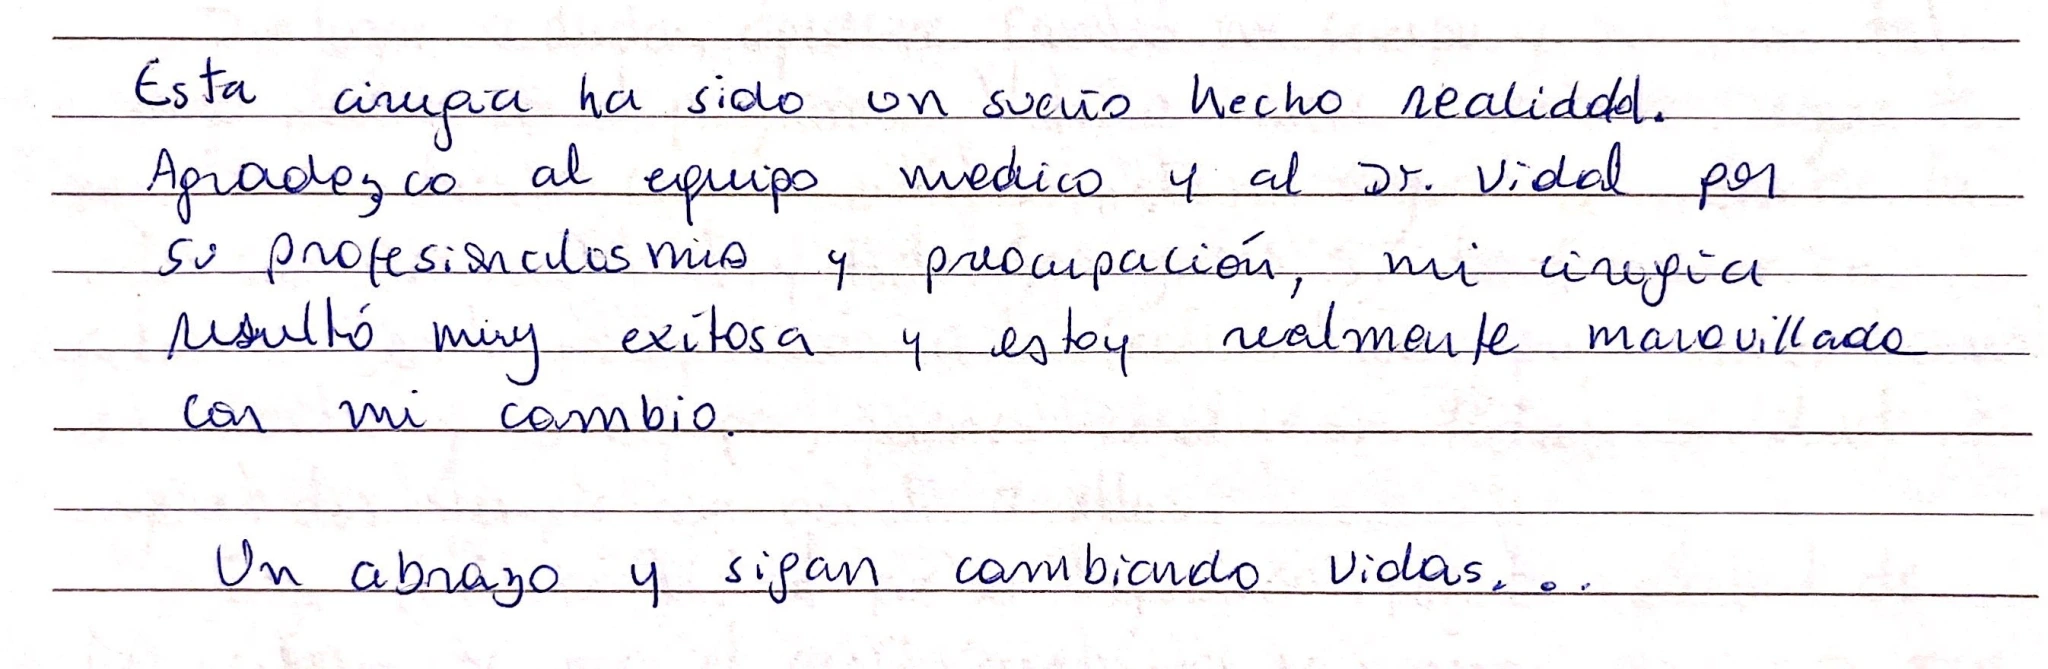 Esta cirugia ha sido un sueño hecho realidad.
Agradezco al equipo medico y al Dr. Vidal por
su profesionalosmio y preocupación, mi cirugia
resultó muy exitosa y estoy realmente maravillado
con mi cambio.
Un abrazo y sigan cambiando vidas...